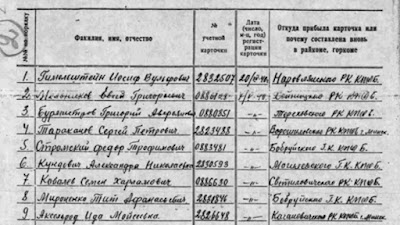 № по порядку Фамилия, имя, отчество № учетной карточки Дата (число, м-ц, год) регистрации карточки Откуда прибыла карточка или почему составлена вновь в райкоме, горкоме
1. Гительштейн Иосиф Вульфович 2832507 Наровлянского РК КП(б)Б.
2. Григорович РК КП(б)Б.
3. Бурмистров Григорий Аверьянович 0880351 -"- РК КП(б)Б.
4. Тараканов Сергей Петрович. 2823488 -"- Ворошиловского РК КП(б)Б г. Минск.
5. Федор Трофимович 0883481 -"- Бобруйского Г.К. КП(б)Б.
6. Кундевич Александра Николаевна -"- Могилевского Г.К. КП(б)Б.
7. Ковалев Семен Харлампович 0886630 -"- Светиловичского РК КП(б)Б.
8. Мироненко Тит Афанасьевич 2881846 -"- Бобруйского Г.К. КП(б)Б.
9 Аксельрод Ида Моисеевна. 2826648 -"- Кагановичского РК КП(б)Б г. Минск.